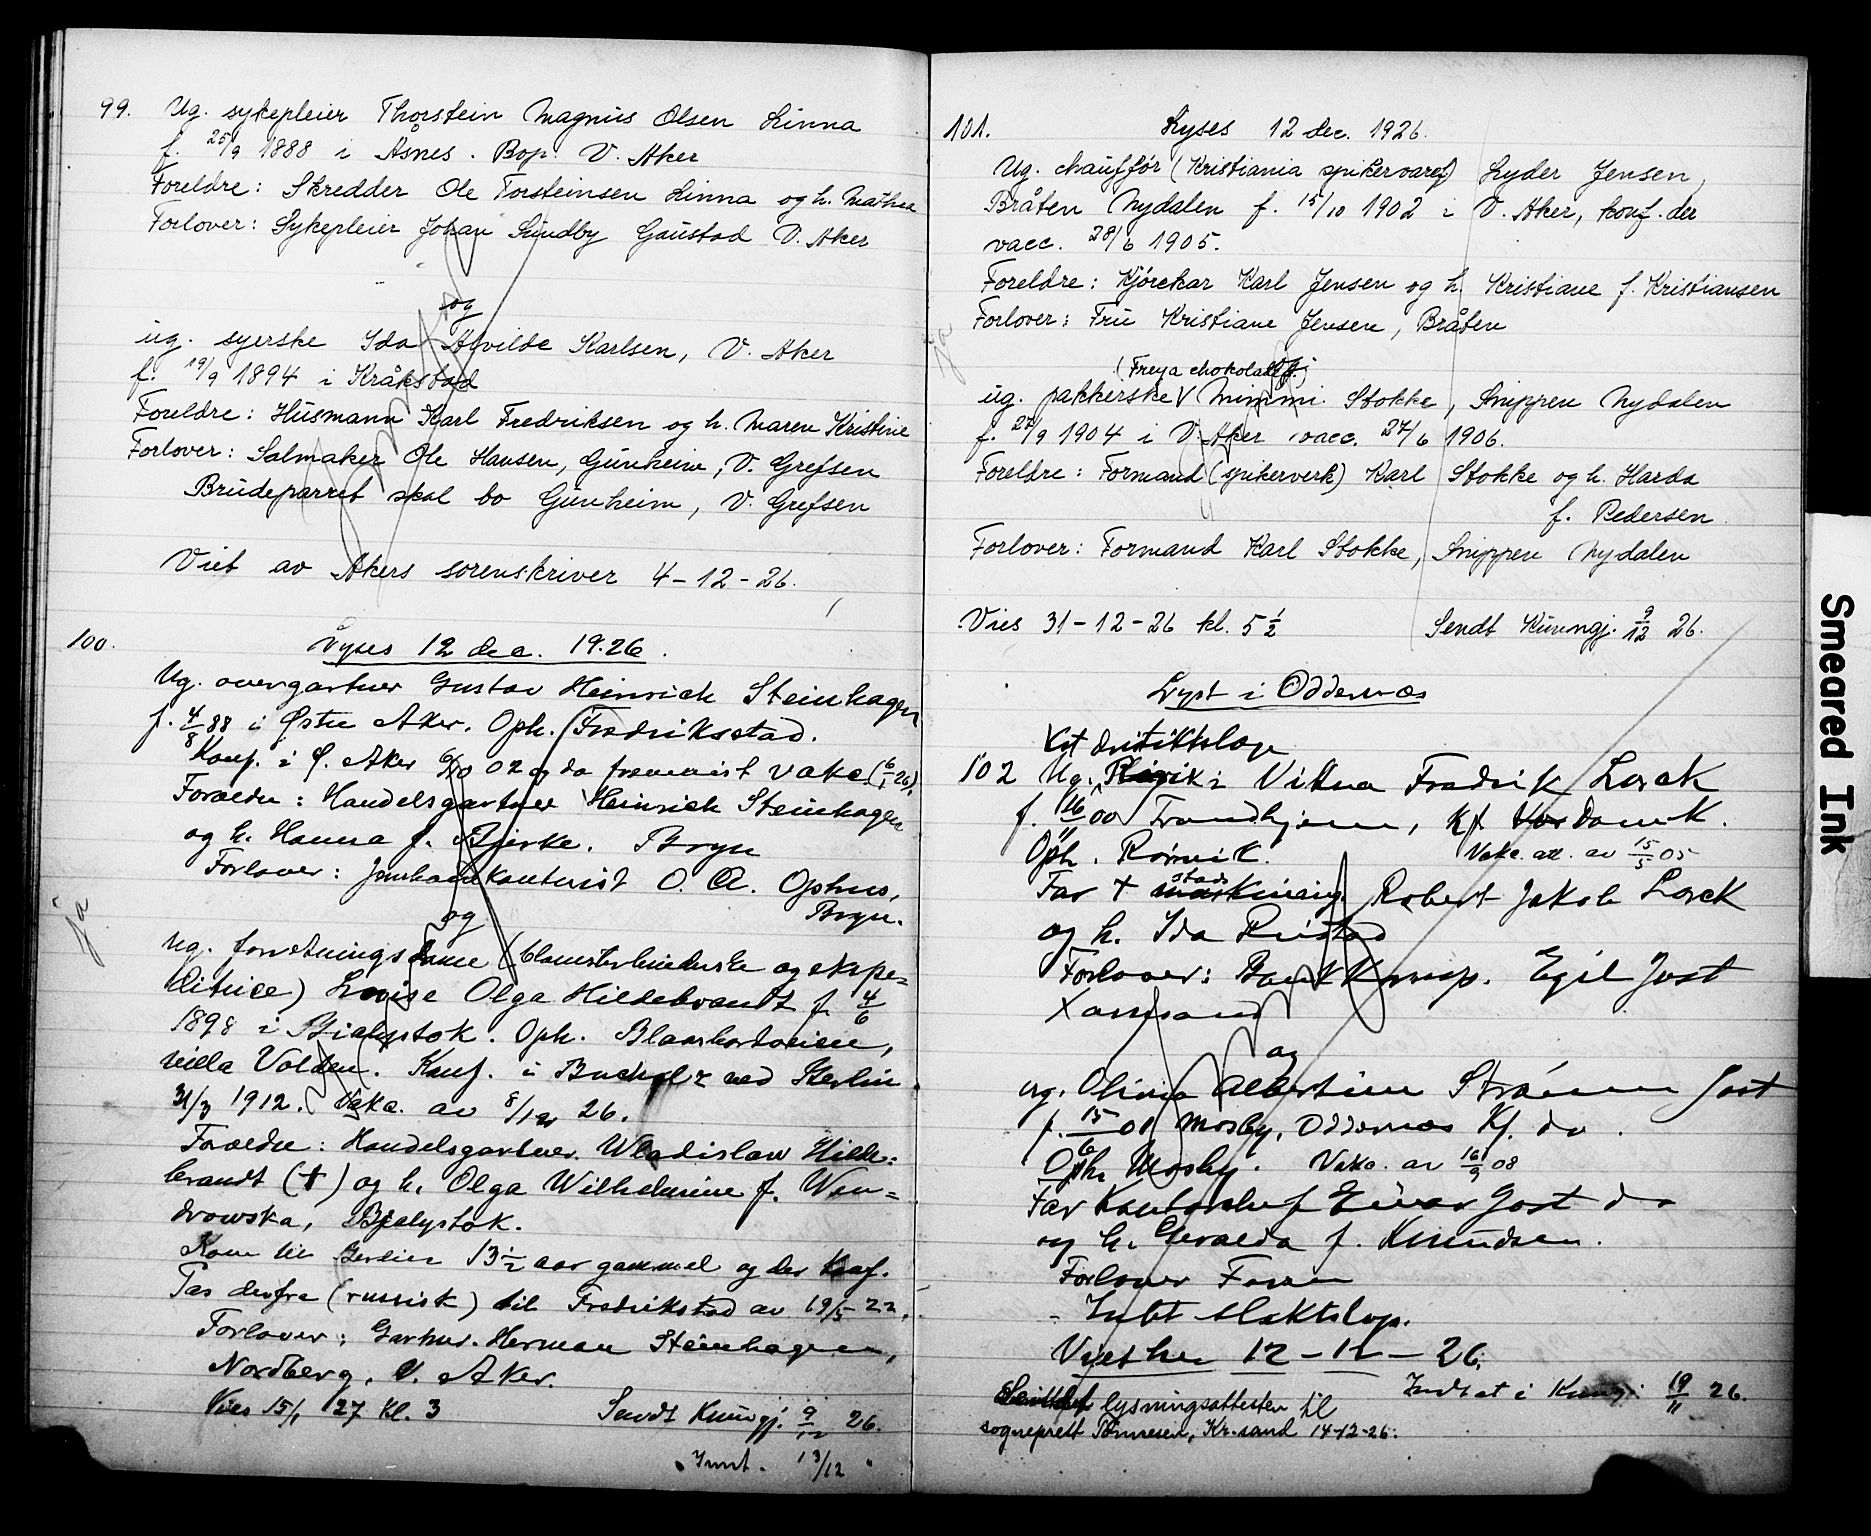 99. Ug. sykepleier Thorstein Magnus Olsen Linna
f. 25/9 1888 i Åsnes. Bop. V. Aker
Foreldre: Skredder Ole Torsteinsen Linna og h. Mathea
Forlover: Sykepleier Johan Sundby Gaustad V. Aker
og
ug. syerske Ida Alvilde Karlsen, V. Aker
f. 19/9 1894 i Kråkstad
Foreldre: Husmann Karl Fredriksen og h. Maren Kristine
Forlover: Salmaker Ole Hansen, Gunheim, V. Grefsen
Brudeparret skal bo Gunheim, V. Grefsen
Viet av Akers sorenskriver 4-12-26.
100. Lyses 12 dec. 1926.
Ug. overgartner Gustav Heinrich Steinhagen
f. 4/8 88 i Østre Aker. Oph. Fredriksstad.
Konf. i Ø. Aker 02 og da fremvist vakc.
Foreldre: Handelsgartner Heinrich Steinhagen
og h. Hanna f. Bjerke. Bryn
Forlover: O. A. Ophus,
Bryn.
og
ja
ug. forretningsdame (blomsterbinderske og ekspe=
ditrice) Louise Olga Hildebrandt f. 4/6
1898 i Bialystok. Oph.
villa Volden. Konf. i Bucholz ved Berlin
31/3 1912. Vakc. av 8/12 26.
Foreldre: Handelsgartner Wladislaw Hilde=
brandt (†) og h. Olga Wilhelmine f. Wen=
drowska, Bjalystok.
Kom til Berlin 13 1/2 aar gammel og der konf.
Pas derfra (russisk) til Fredrikstad av 19/5 22.
Forlover: Gartner Herman Steinhagen,
Nordberg, V. Aker.
Vies 15/1 27 kl. 3 Sendt Kunngj. 9/12 26.
" Innt. 13/12 "
101. Lyses 12 dec. 1926.
Ug. chauffør (Kristiania spikervaref) Lyder Jensen,
Bråten Nydalen f. 15/10 1902 i V. Aker, konf. der
vacc. 28/6 1905.
Foreldre: Kjørekar Karl Jensen og h. Kristiane f. Kristiansen
Forlover: Fru Kristiane Jensen, Bråten
ja
(Freya chokoladef.)
ug. pakkerske V Mimmi Stokke, Snippen Nydalen
f. 22/9 1904 i V. Aker, vacc. 27/6 1906.
Foreldre: Formand (spikerverk) Karl Stokke og h. Harda
f. Pedersen.
Forlover: Formand Karl Stokke, Snippen Nydalen
Vies 31-12-26 kl. 5 1/2 Sendt Kunngj. 9/12 26.
Lyst i Oddernes
102 Ug. Fredrik Lorck
f. 16/11 00 Trondhjem, Kf. Domk.
Oph. Rørvik. Vakc. att. av 15/5 05
Far † stads Robert Jakob Lorck
og h. Ida Ristad
Forlover: Egil Jost
og
ug. Olivia Albertine Strømme Jost
f. 15/6 01 Mosby, Oddernes Kf. do.
Oph. Mosby. Vakc. av 16/9 08
Far Einar Jost do
og h. Geralda f. Knudsen.
Forlover Faren
Viet her 12-12-26.
Indsat i Kunngj. 19/11 26.
Sendt lysningsattesten til
sogneprest Tønnesen, Kr.sand 14-12-26.
Smeared Ink